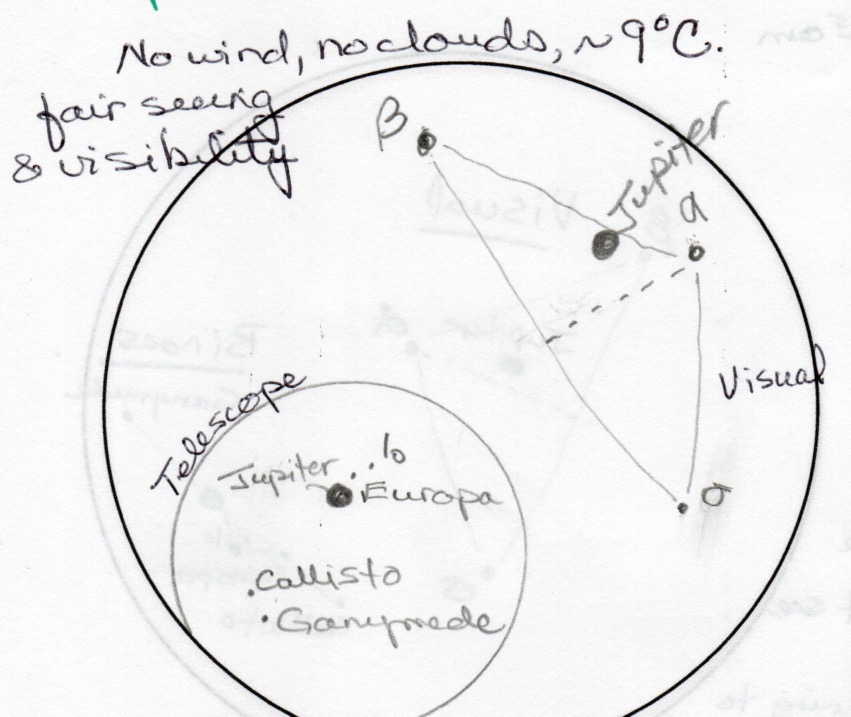 No wind, no clouds, ~ 9°C.
fair seeing
& visibility
β
Jupiter
α
Visual
σ
Telescope
Jupiter
Io
Europa
Callisto
Ganymede